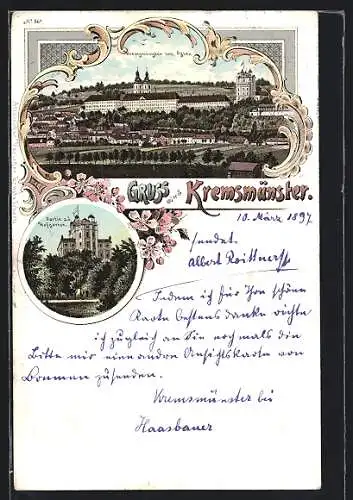 Kremsmünster von Süden.
Partie a. d. Hofgarten.
GRUSS aus Kremsmünster.
10. März 1897.
sendet
Albert
Indem ich für Ihre schöne
Karte bestens danke richte
ich zugleich an Sie noch mals die
Bitte mir eine andre Ansichtskarte von
zusenden.
Kremsmünster bei
Haasbauer